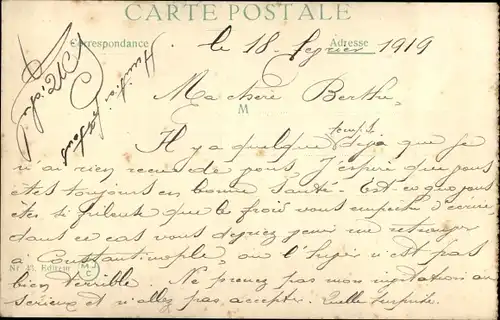 CARTE POSTALE
Correspondance
Adresse
le 18 fevrier 1919
Ma chère Berthe,
M
temps
Il y a quelque déjà que je
n'ai rien recu de vous. J'espère que vous
êtes toujours en bonne santé. Est-ce que vous
êtes si frileuse que le froid vous empêche d'écrire
dans ce cas vous devriez venir me retrouver
à Constantinople, ou l'hiver n'est pas
bien terrible. Ne prenez pas mon invitation au
serieux et n'allez pas accepter. Quelle surprise.
Nº 43. Editeur
MC